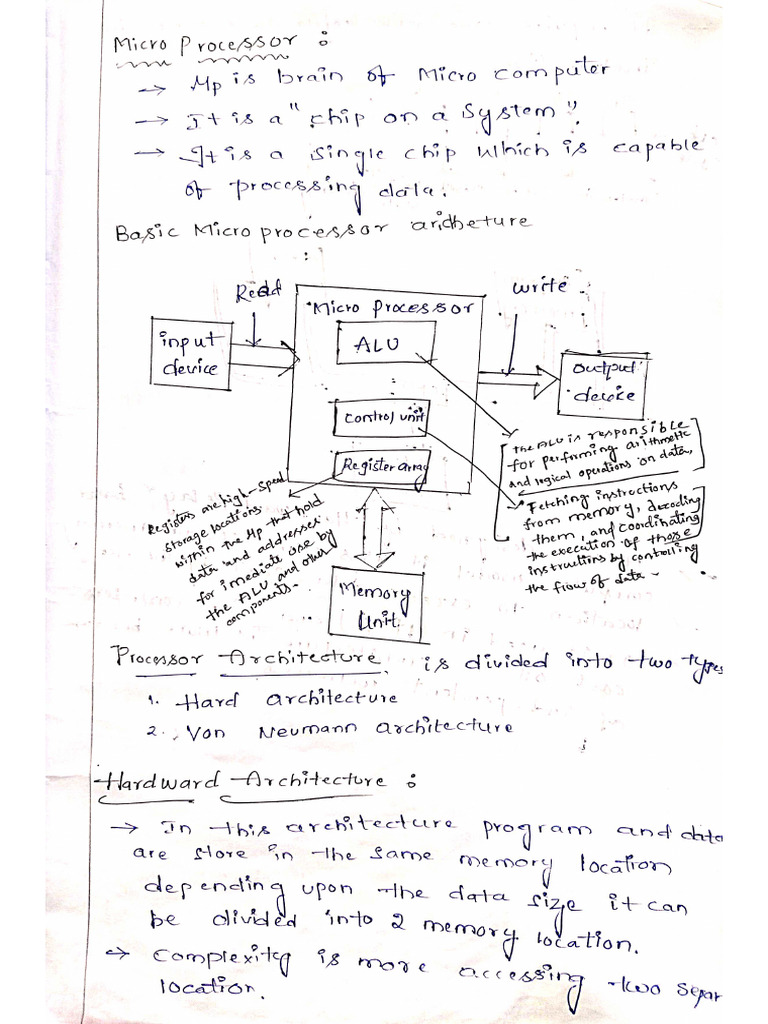 Micro Processor :
→ Mp is brain of Micro computer
→ It is a "chip on a System".
→ It is a single chip which is capable
of processing data.
Basic Microprocessor aridheture
:
Read
write
Micro processor
input
device
ALU
output
device
control unit
Register array
the ALU is responsible
for performing arithmetic
and logical operations on data,
Fetching instructions
from memory, decoding
them, and coordinating
the execution of those
instructions by controlling
the flow of data
Registers are high-speed
storage locations
within the Mp that hold
data and addresses
for imediate use by
the ALU and other
components.
Memory
Unit
Processor Architecture is divided into two types
1. Hard architecture
2. Von Neumann architecture
Hardward Architecture :
→ In this architecture program and data
are store in the same memory location
depending upon the data size it can
be divided into 2 memory location.
→ Complexity is more accessing two separ
location.